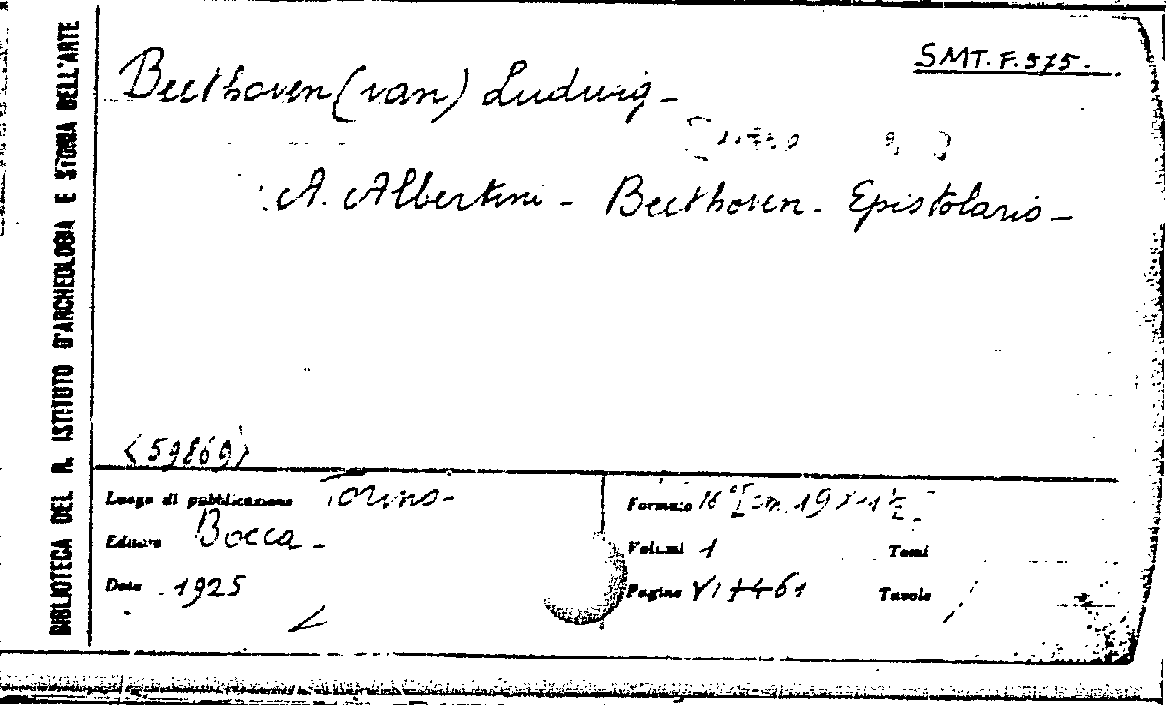 BIBLIOTECA DEL R. ISTITUTO D'ARCHEOLOGIA E STORIA DELL'ARTE
SMT. F. 575.
Beethoven (van) Ludwig -
A. Albertini - Beethoven - Epistolario -
<59869>
Luogo di pubblicazione Torino -
Editore Bocca -
Data 1925
Formato 16° [cm. 19
Volumi 1 Tomi
Pagine VI + 461 Tavole /